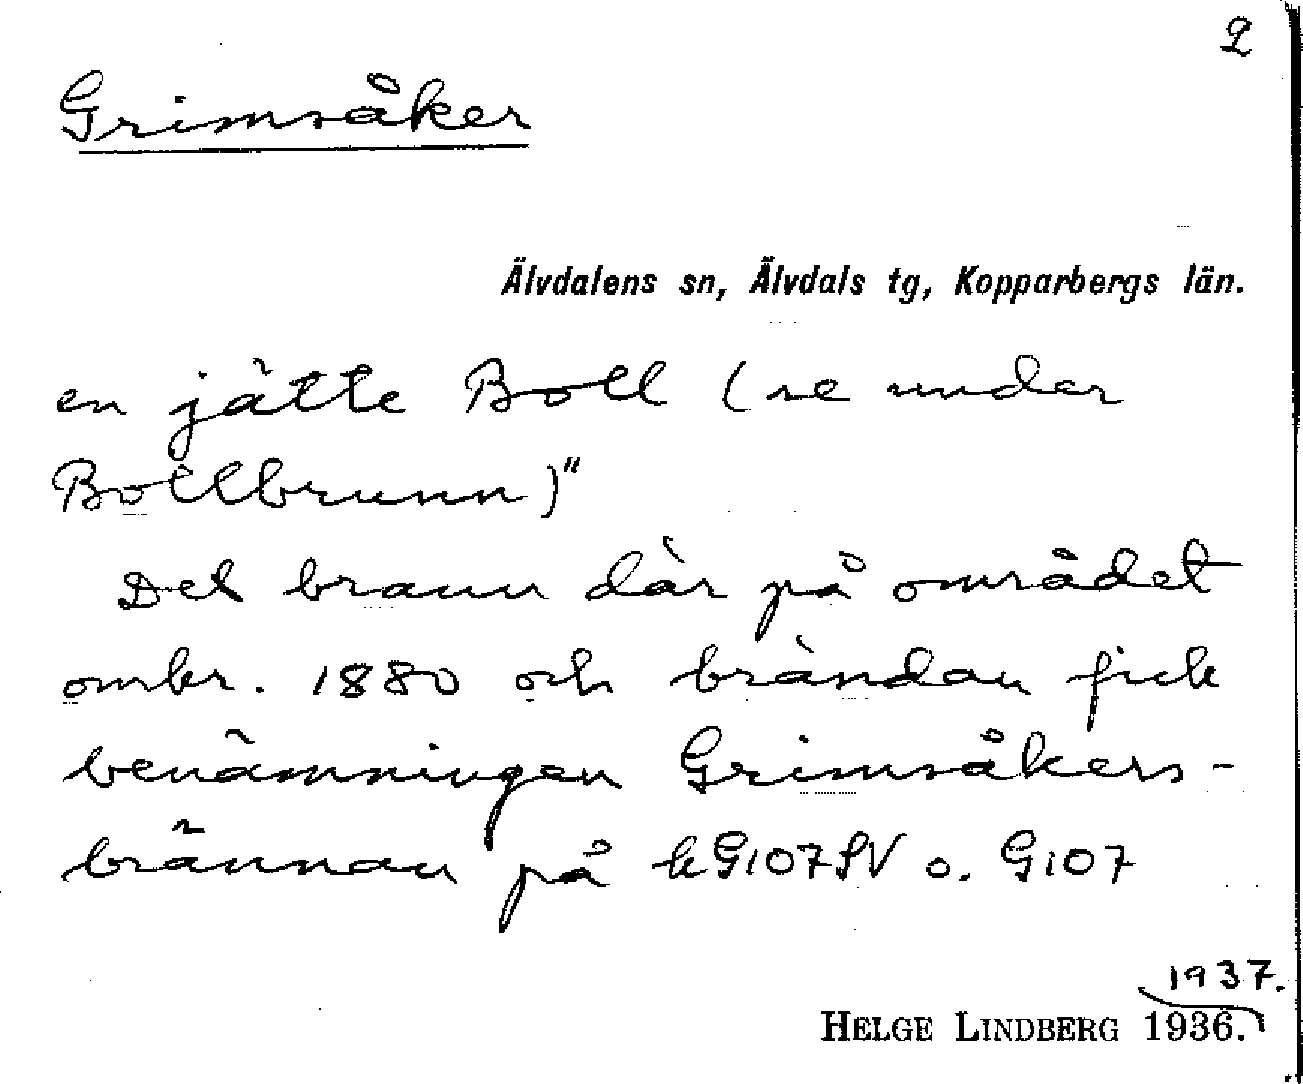 2
Grimsåker
Älvdalens sn, Älvdals tg, Kopparbergs län.
en jätte Boll (se under
Bollbrunn)"
Det brann där på området
omkr. 1880 och brändan fick
benämningen Grimsåkers-
brännan på kG107SV o. G107
1937.
HELGE LINDBERG 1936.